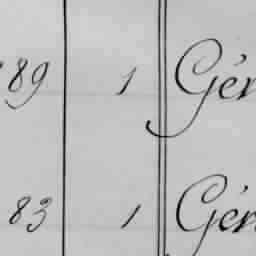 89 1 Gér
83 1 Gér